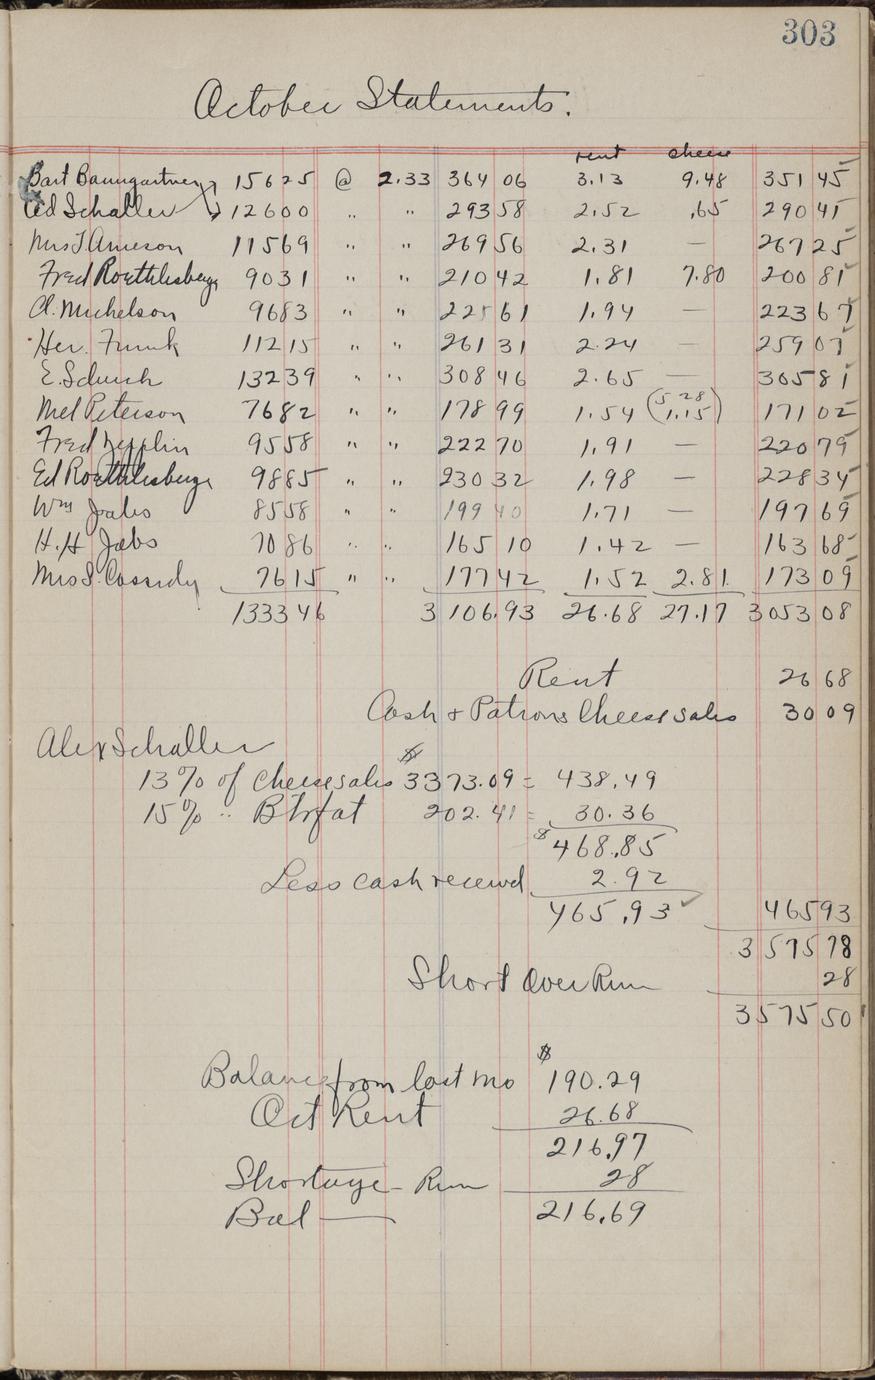 303
October Statements.
rent cheese
Bart Baumgartner 15625 @ 2.33 364 06 3.13 9.48 351 45
Ed Schaller 12600 " " 293 58 2.52 .65 290 41
Mrs T Arneson 11569 " " 269 56 2.31 — 267 25
Fred Roethlisberger 9031 " " 210 42 1.81 7.80 200 81
Cl. Michelson 9683 " " 225 61 1.94 — 223 67
Her. Funk 11215 " " 261 31 2.24 — 259 07
E. Schuch 13239 " " 308 46 2.65 — 305 81
Mel Peterson 7682 " " 178 99 1.54 (5.28 1.15) 171 02
Fred Zepplin 9558 " " 222 70 1.91 — 220 79
Ed Roethlisberger 9885 " " 230 32 1.98 — 228 34
Wm Jabs 8558 " " 199 40 1.71 — 197 69
H.H. Jabs 7086 " " 165 10 1.42 — 163 68
Mrs S. Cassidy 7615 " " 177 42 1.52 2.81 173 09
133346 3 106.93 26.68 27.17 3053 08
Rent 26 68
Cash + Patrons Cheese sales 30 09
Alex Schaller
13% of Cheese sales $3373.09 = 438.49
15% " Btrfat 202.41 = 30.36
$468.85
Less cash received 2.92
465.93 ✓ 465 93
3 575 78
Short Over Run 28
3575 50
Balance from last mo $190.29
Oct Rent 26.68
216.97
Shortage - Run 28
Bal — 216.69